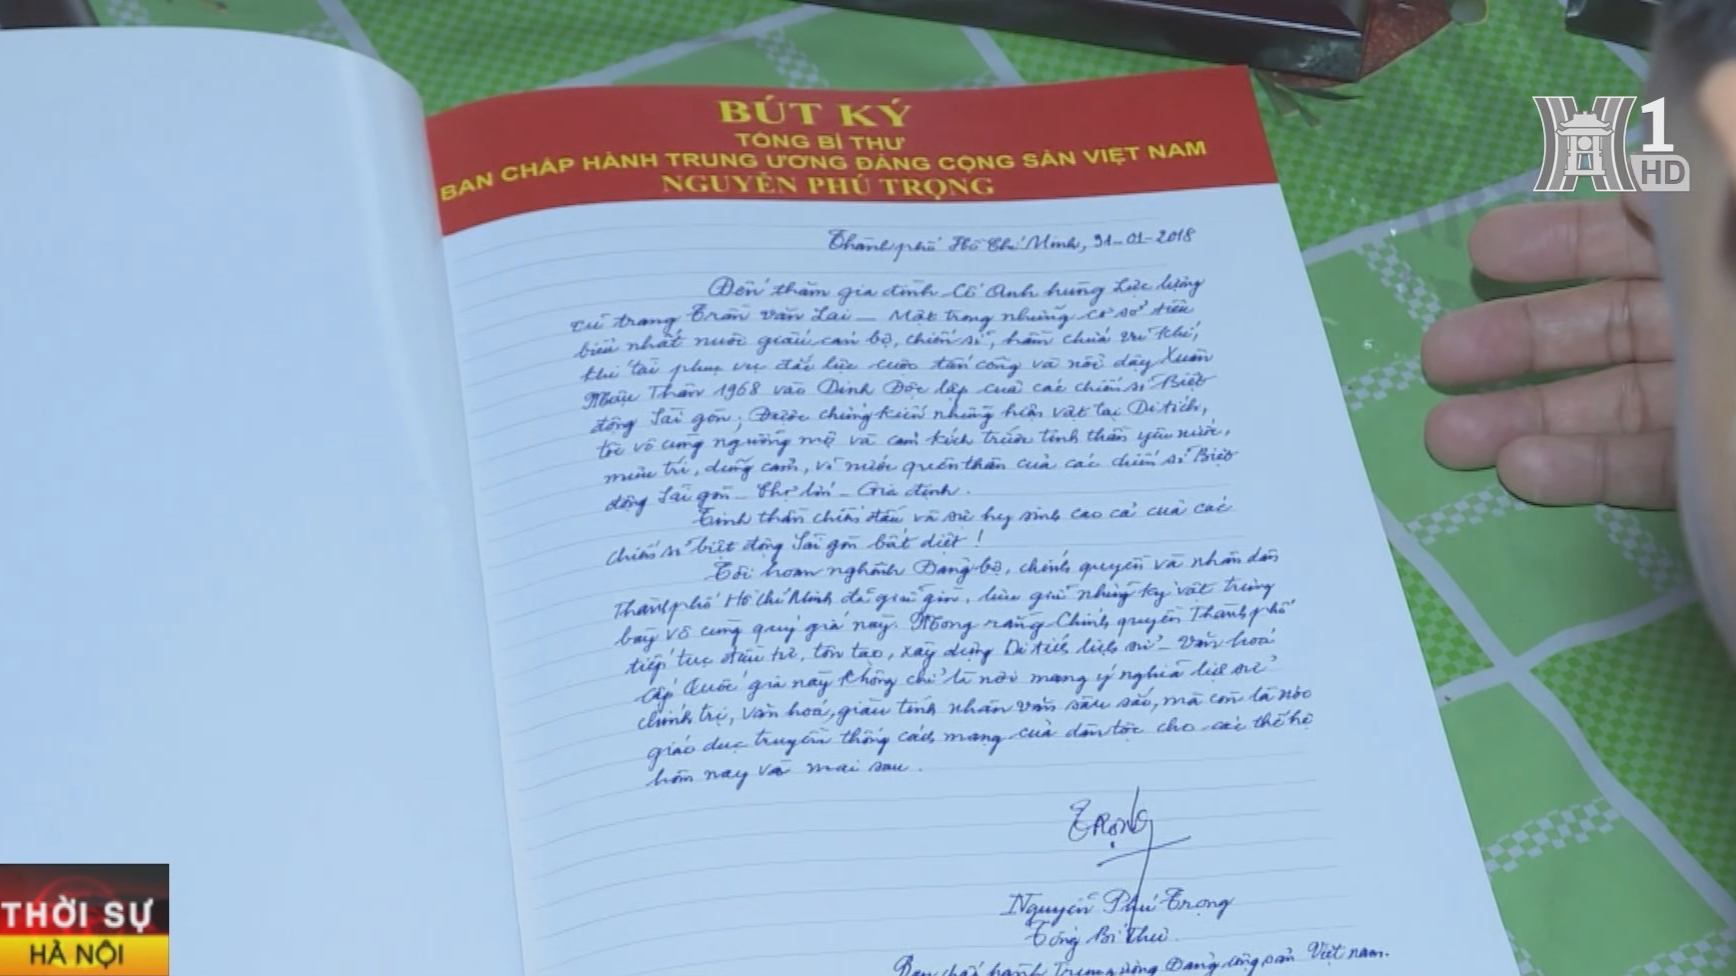 BÚT KÝ
TỔNG BÍ THƯ
BAN CHẤP HÀNH TRUNG ƯƠNG ĐẢNG CỘNG SẢN VIỆT NAM
NGUYỄN PHÚ TRỌNG
1
HD
Thành phố Hồ Chí Minh, 31-01-2018
Đến thăm gia đình Cố Anh hùng Lực lượng
vũ trang Trần Văn Lai - Một trong những cơ sở tiêu
biểu nhất nuôi giấu cán bộ, chiến sĩ, hầm chứa vũ khí,
khí tài phục vụ đắc lực cuộc tấn công và nổi dậy Xuân
Mậu Thân 1968 vào Dinh Độc lập của các chiến sĩ Biệt
động Sài gòn; Được chứng kiến những hiện vật tại Di tích,
tôi vô cùng ngưỡng mộ và cảm kích trước tinh thần yêu nước,
mưu trí, dũng cảm, vì nước quên thân của các chiến sĩ Biệt
động Sài gòn - Chợ lớn - Gia định.
Tinh thần chiến đấu và sự hy sinh cao cả của các
chiến sĩ biệt động Sài gòn bất diệt!
Tôi hoan nghênh Đảng bộ, chính quyền và nhân dân
Thành phố Hồ Chí Minh đã giữ gìn, lưu giữ những kỷ vật trưng
bày vô cùng quý giá này. Mong rằng Chính quyền Thành phố
tiếp tục đầu tư, tôn tạo, xây dựng Di tích lịch sử - Văn hoá
cấp Quốc gia này không chỉ là nơi mang ý nghĩa lịch sử
chính trị, văn hoá, giàu tính nhân văn sâu sắc, mà còn là nơi
giáo dục truyền thống cách mạng của dân tộc cho các thế hệ
hôm nay và mai sau.
Trọng
Nguyễn Phú Trọng
Tổng Bí Thư
Ban chấp hành Trung ương Đảng cộng sản Việt nam.
THỜI SỰ
HÀ NỘI